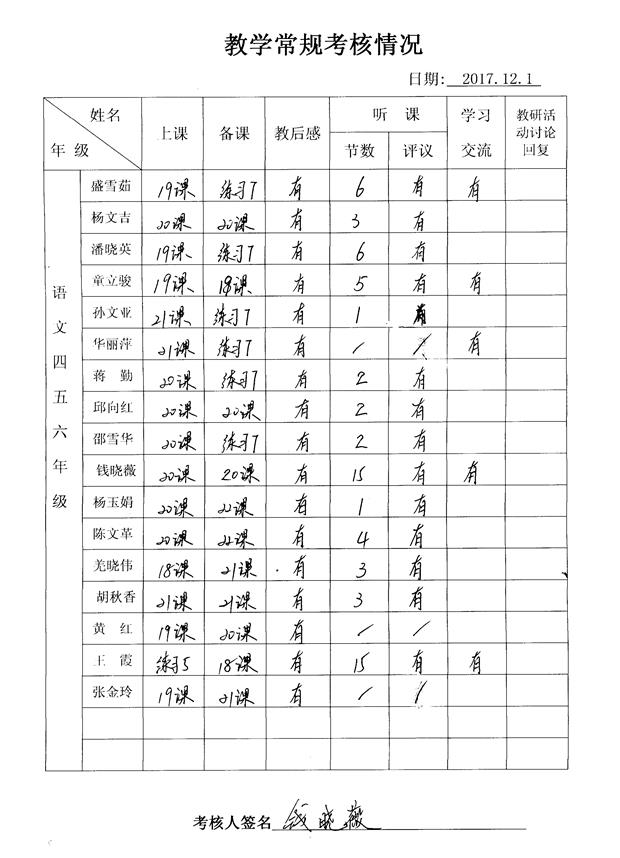 教学常规考核情况
日期: 2017.12.1
姓名 年级 上课 备课 教后感 听课 节数 评议 学习交流 教研活动讨论回复
语文四五六年级
盛雪茹 19课 练习7 有 6 有 有
杨文吉 20课 20课 有 3 有
潘晓英 19课 练习7 有 6 有
童立骏 19课 18课 有 5 有 有
孙文亚 21课 练习7 有 1 有
华丽萍 21课 练习7 有 / / 有
蒋勤 20课 练习7 有 2 有
邱向红 20课 20课 有 2 有
邵雪华 20课 练习7 有 2 有
钱晓薇 20课 20课 有 15 有 有
杨玉娟 20课 22课 有 1 有
陈文革 20课 22课 有 4 有
羌晓伟 18课 21课 有 3 有
胡秋香 21课 21课 有 3 有
黄红 19课 20课 有 / /
王霞 练习5 18课 有 15 有 有
张金玲 19课 21课 有 / /
考核人签名 钱晓薇